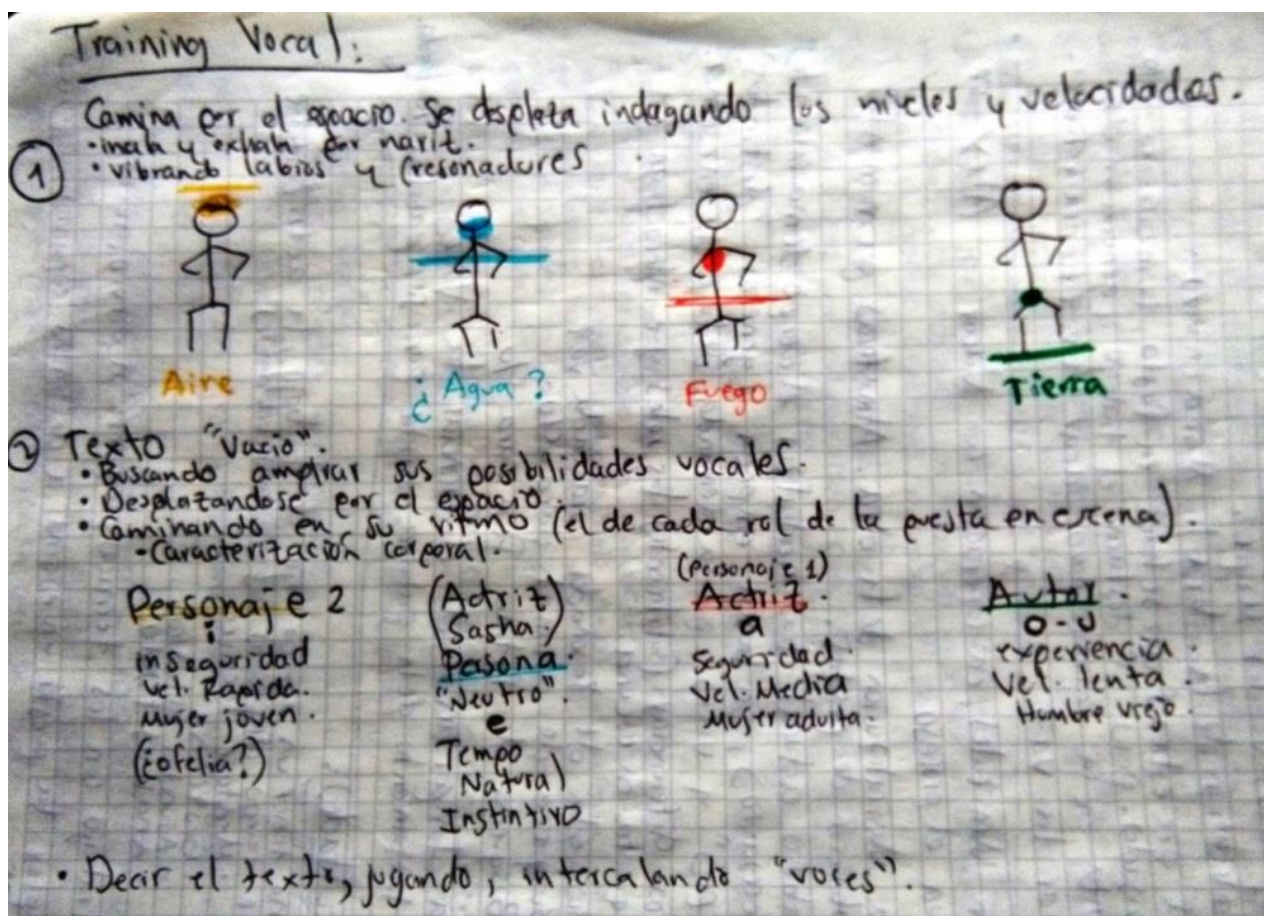 Training Vocal:
Camina por el espacio. Se desplaza indagando los niveles y velocidades.
• inala y exhala por nariz.
① • vibrando labios y (resonadores
Aire ¿Agua? Fuego Tierra
② Texto "Vacio".
• Buscando ampliar sus posibilidades vocales.
• Desplazandose por el espacio.
• Caminando en su ritmo (el de cada rol de la puesta en escena).
- Caracterización corporal.
Personaje 2
i
inseguridad
vel. Rapida.
Mujer joven.
(¿ofelia?)
(Actriz)
(Sasha)
Persona.
"Neutro".
e
Tempo
Natural
Instintivo
(Personaje 1)
Actriz.
a
Seguridad.
Vel. Media
Mujer adulta.
Autor.
o-u
experiencia.
Vel. lenta.
Hombre viejo.
• Decir el texto, jugando, intercalando "voces".